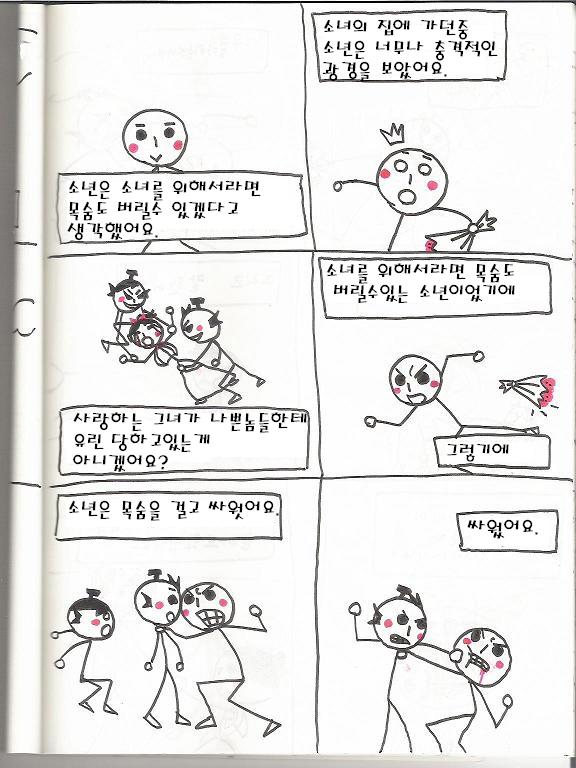 소년은 소녀를 위해서라면
목숨도 버릴수 있겠다고
생각했어요.
소녀의 집에 가던중
소년은 너무나 충격적인
광경을 보았어요.
사랑하는 그녀가 나쁜놈들한테
유린 당하고있는게
아니겠어요?
소녀를 위해서라면 목숨도
버릴수있는 소년이었기에
그렇기에
소년은 목숨을 걸고 싸웟어요.
싸웠어요.